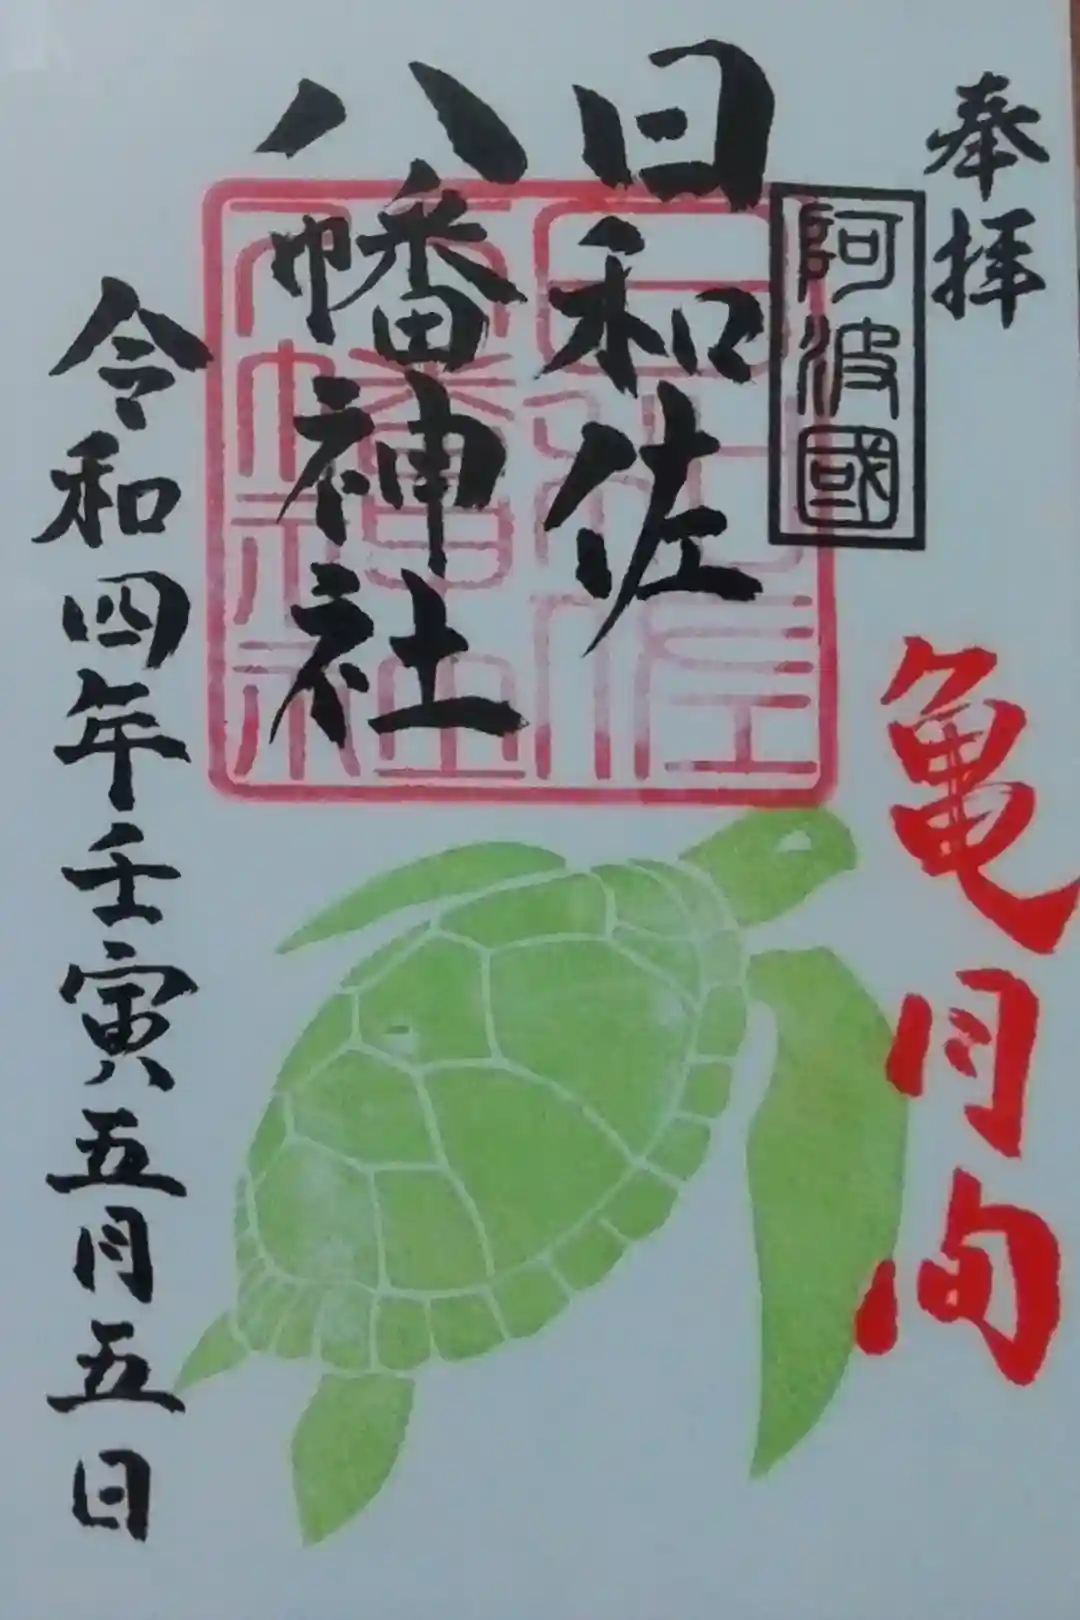 奉拝
阿波國
亀月
日和佐
八幡神社
日和佐
八幡神社
令和四年壬寅五月五日